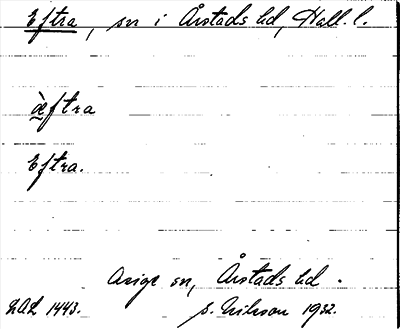 Eftra, sn i Årstads hd, Hall. l.
æ̀ftra
Eftra.
Asige sn, Årstads hd.
LAL 1443. S. Nilsson 1932.